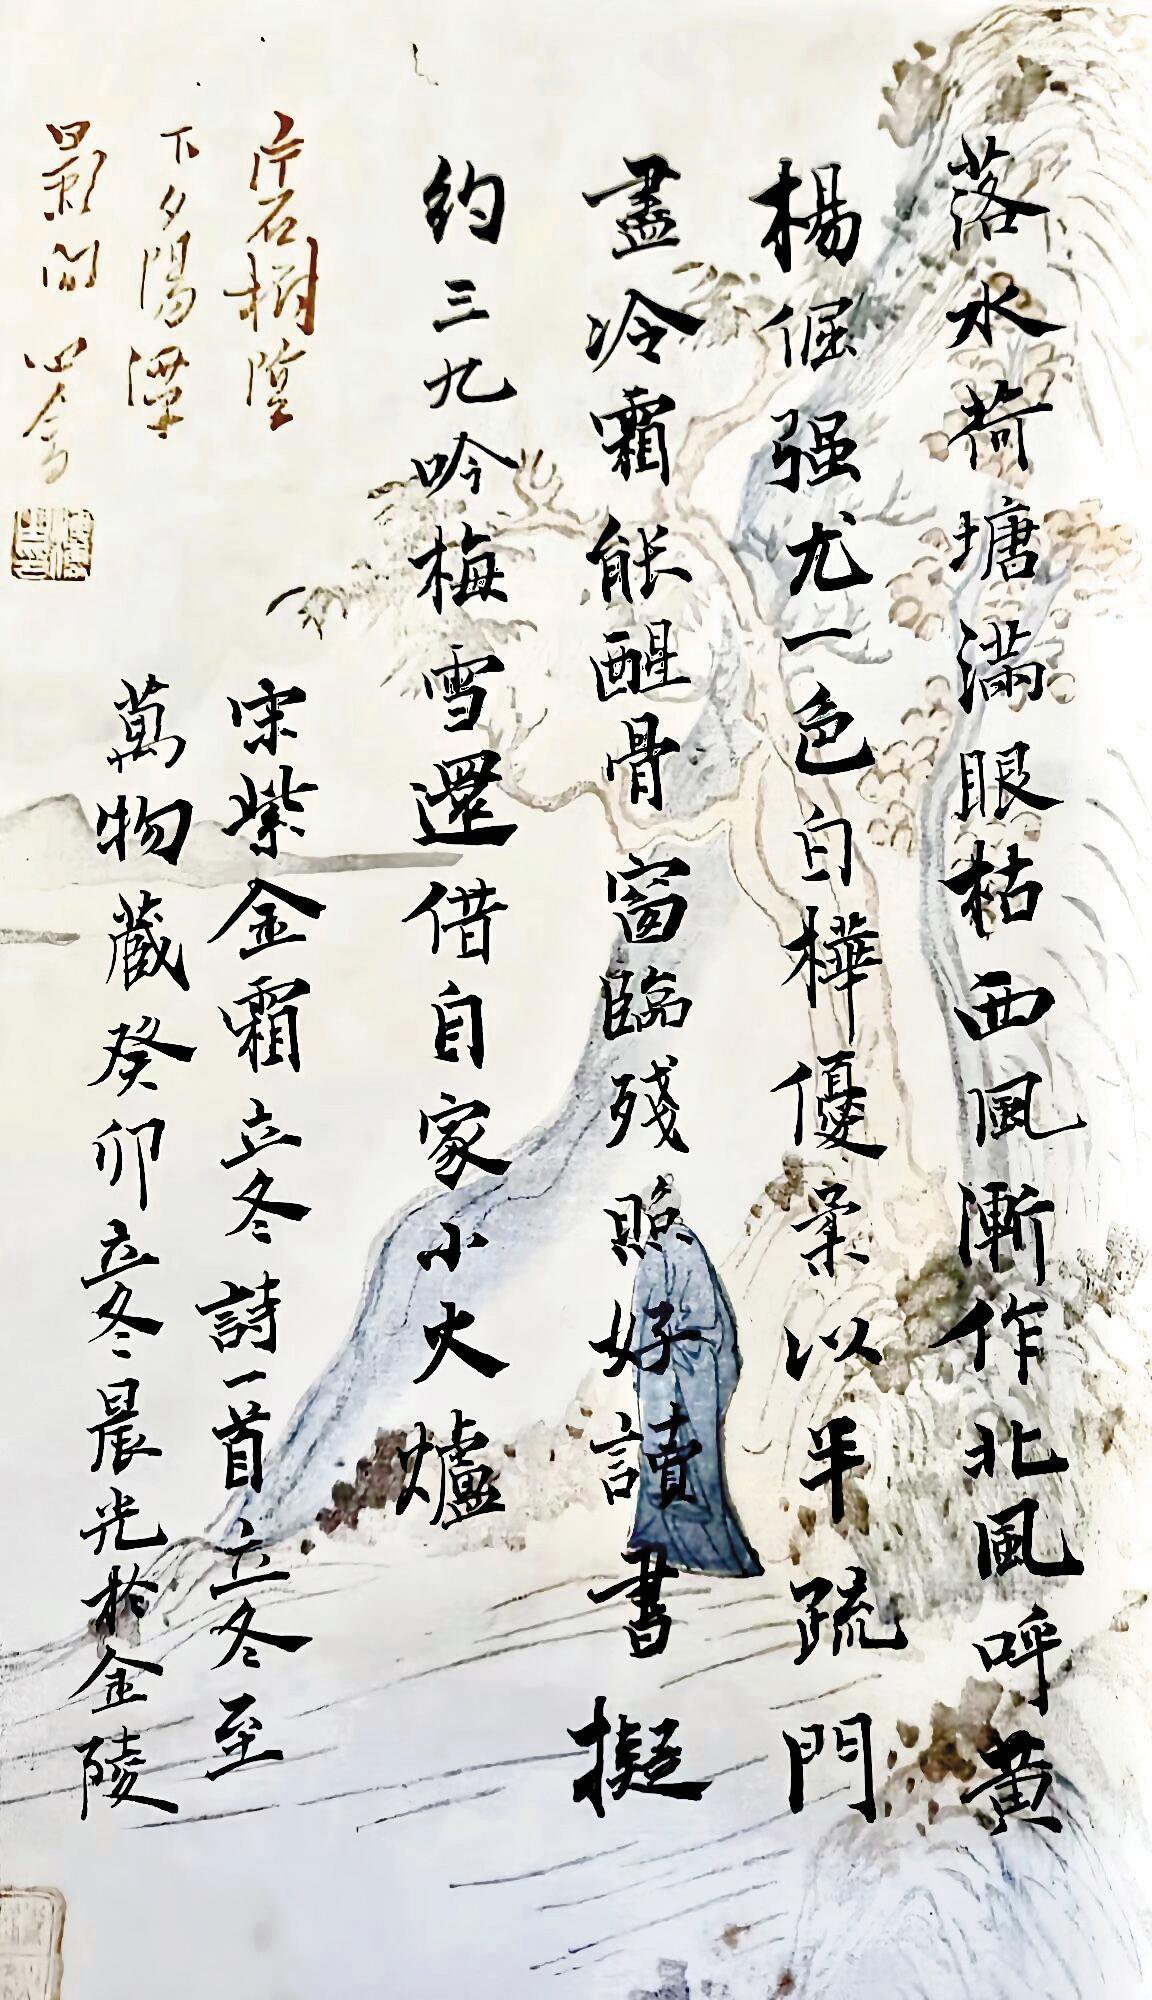 落水荷塘滿眼枯西風漸作北風呼黃
楊倔强尤一色白樺優柔以半疏門
盡冷霜能醒骨窗臨殘照好讀書擬
約三九吟梅雪還借自家小火爐
宋紫金霜立冬詩一首立冬至
萬物藏癸卯立冬晨光於金陵
片石樹陰
下夕陽潭
影間 心畬